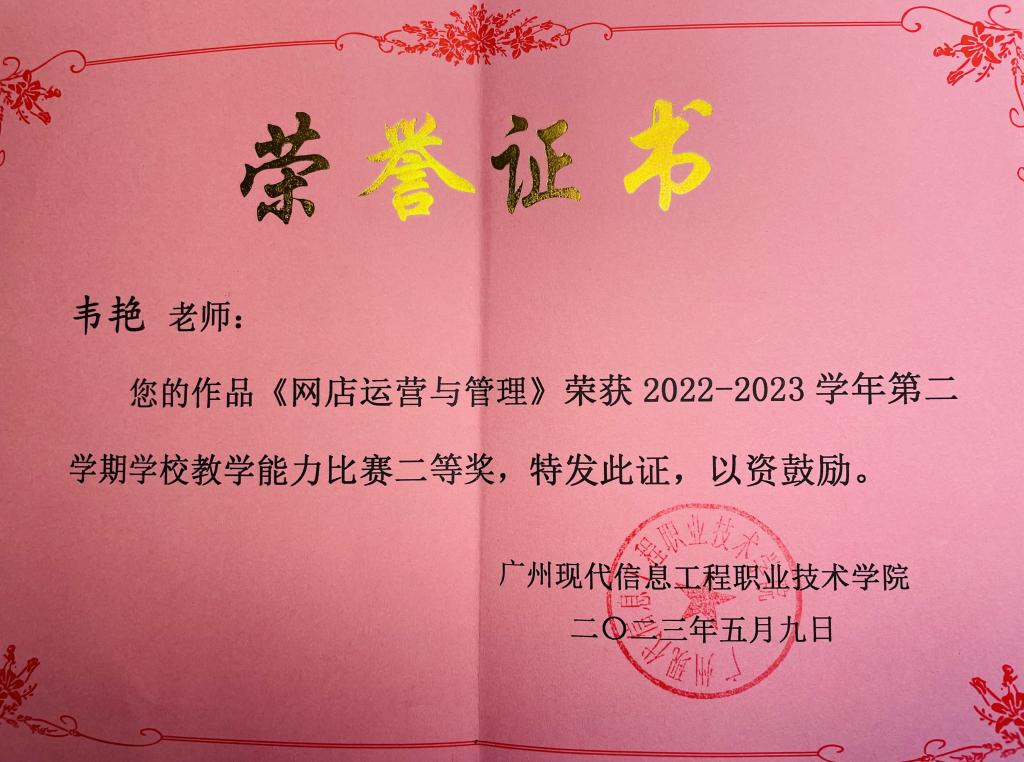 荣誉证书
韦艳 老师：
您的作品《网店运营与管理》荣获 2022-2023 学年第二
学期学校教学能力比赛二等奖，特发此证，以资鼓励。
广州现代信息工程职业技术学院
二〇二三年五月九日
广州现代信息工程职业技术学院